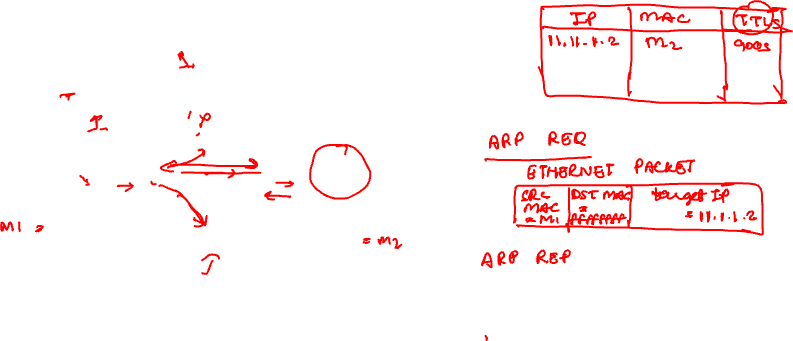 IP MAC TTLS
11.11.1.2 M2 900s
ARP REQ
ETHERNET PACKET
SRC MAC = M1
DST MAC = FFFFFFFF
target IP = 11.1.1.2
M1 =
= M2
ARP REP